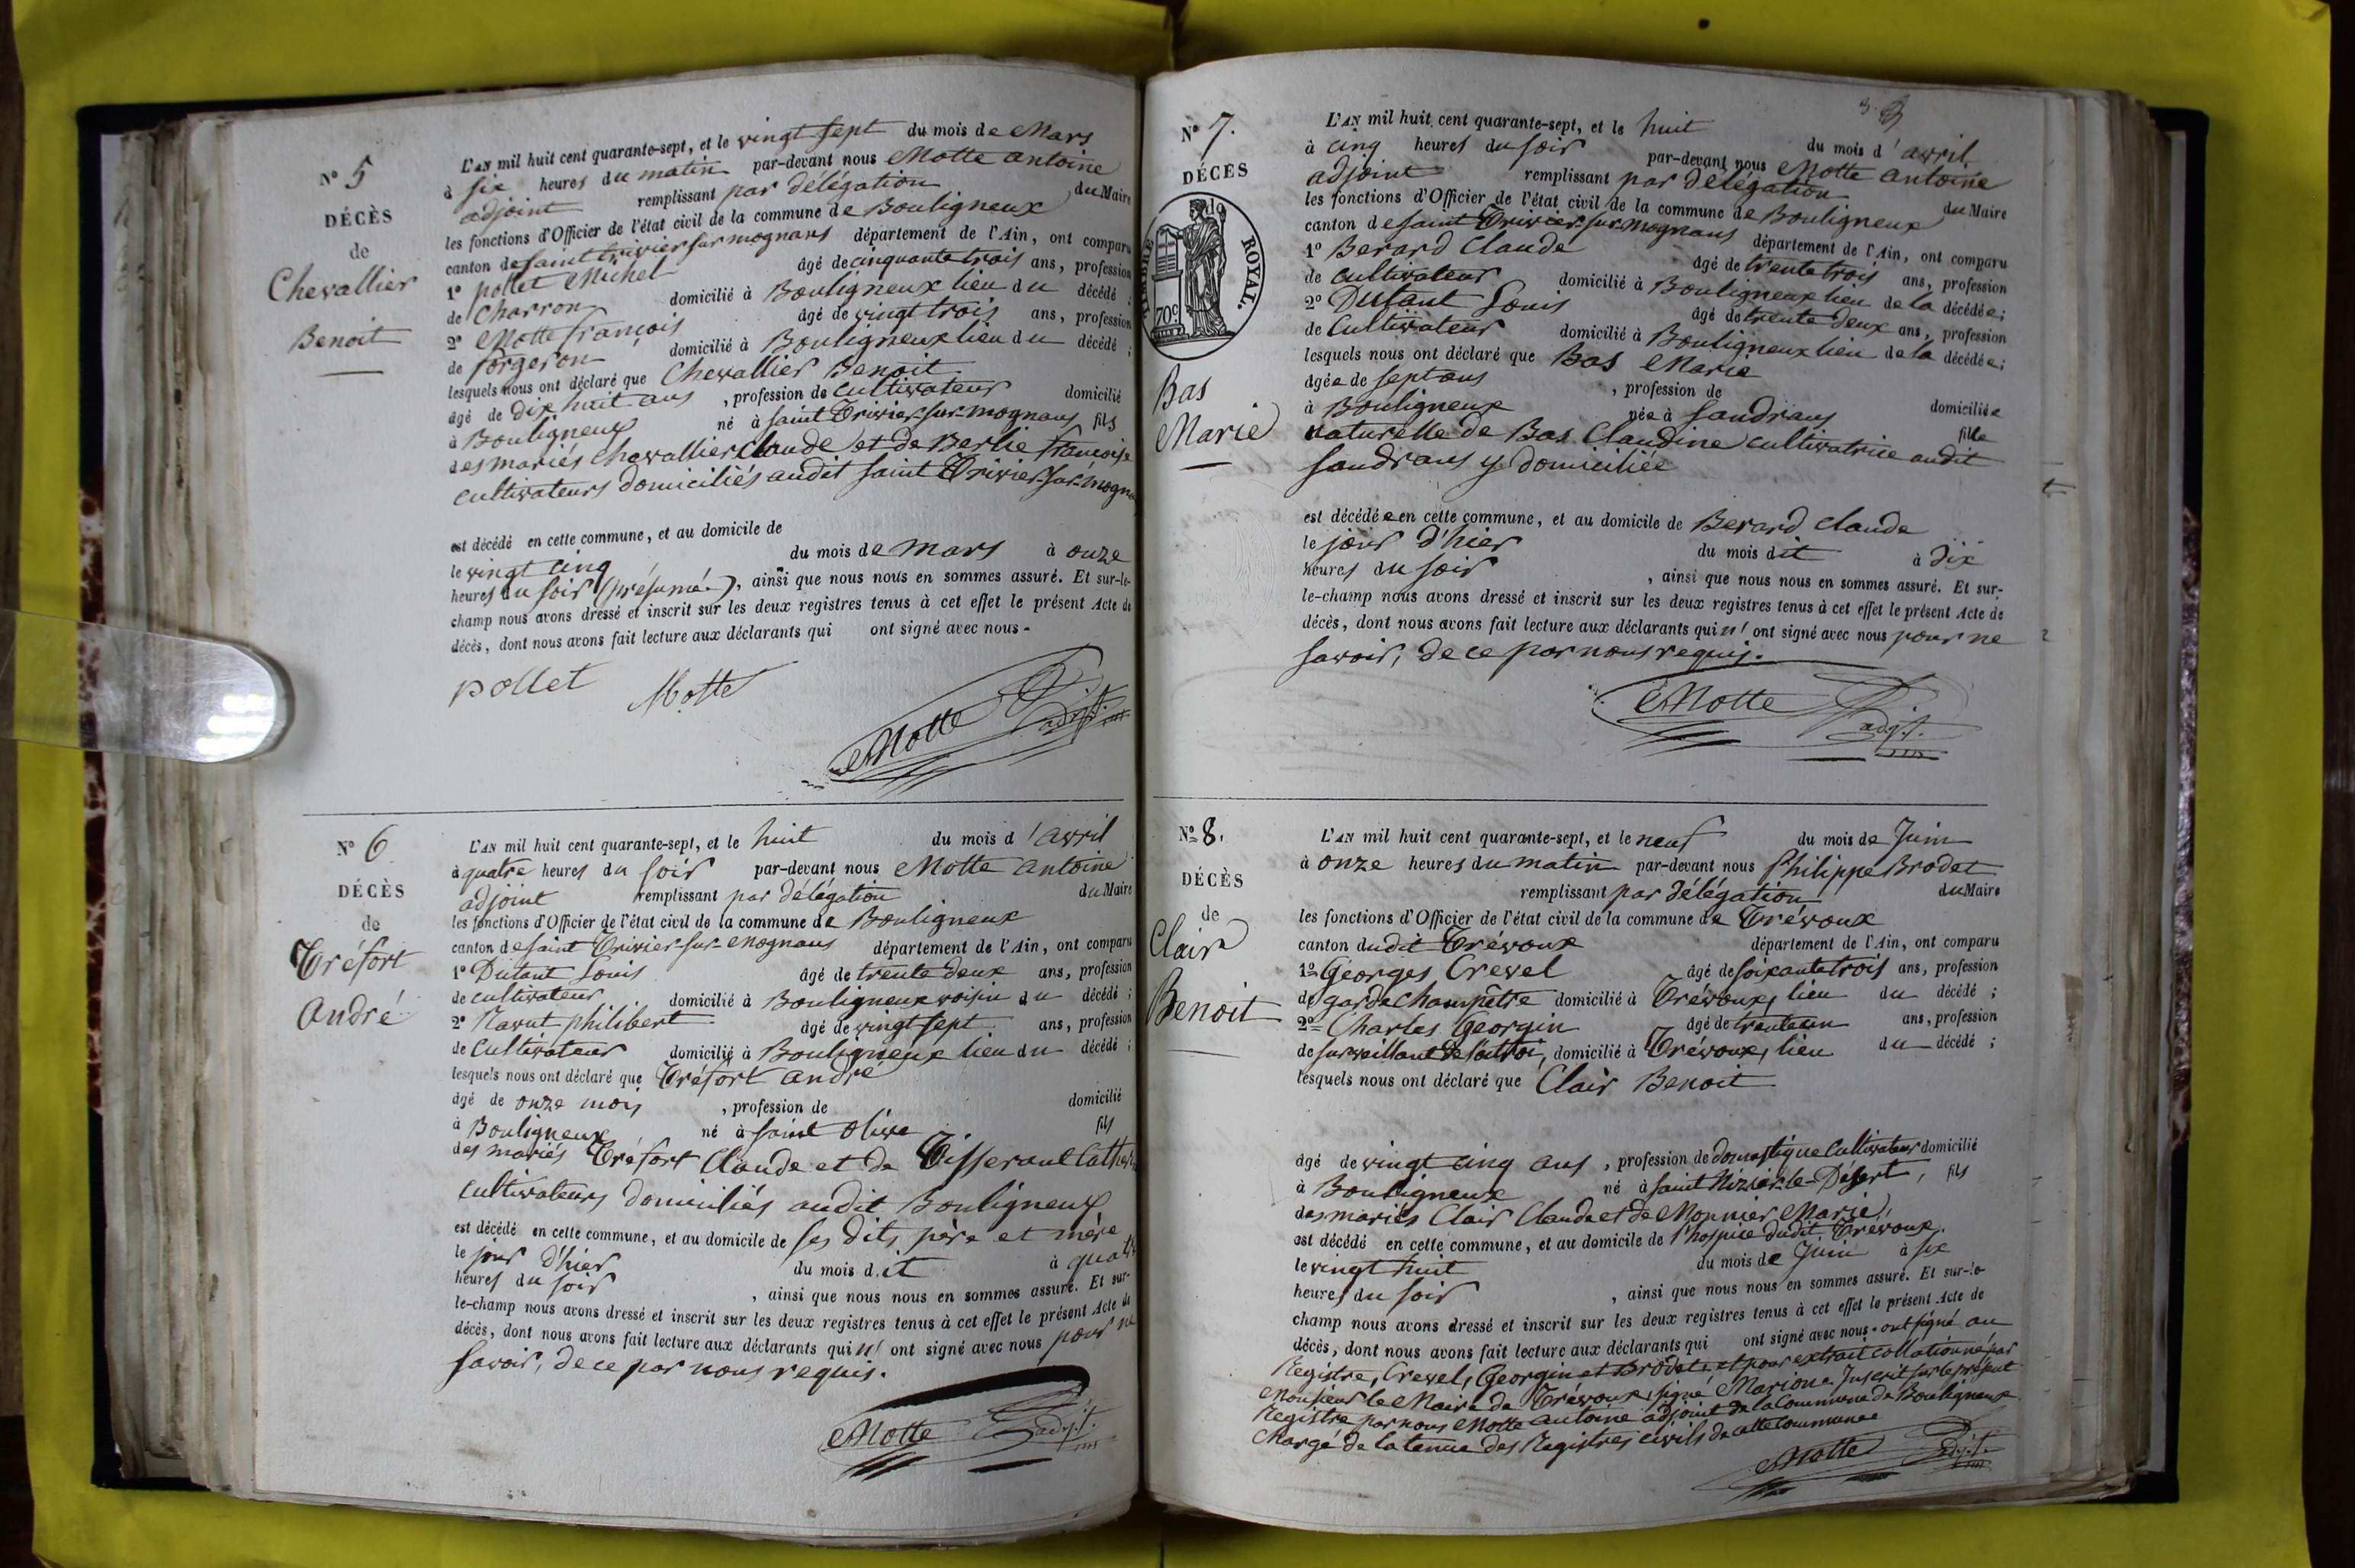 N° 5
DÉCÈS
de
Chevallier
Benoit
L'AN mil huit cent quarante-sept, et le vingt sept du mois de Mars
à six heures du matin par-devant nous Motte antoine
adjoint remplissant par délégation du Maire
les fonctions d'Officier de l'état civil de la commune de Bouligneux
canton de saint trivier sur mognans département de l'Ain, ont comparu
1° pollet Michel âgé de cinquante trois ans, profession
de Charron domicilié à Bouligneux lieu du décédé ;
2° Motte françois âgé de vingt trois ans, profession
de forgeron domicilié à Bouligneux lieu du décédé ;
lesquels nous ont déclaré que Chevallier Benoit
âgé de dix huit ans , profession de cultivateur domicilié
à Bouligneux né à saint Trivier sur mognans fils
des mariés Chevallier Claude et de Berlie françoise
cultivateurs domiciliés audit saint Trivier-sur-mogna
est décédé en cette commune, et au domicile de
le vingt cinq du mois de mars à onze
heures du soir (présumé.), ainsi que nous nous en sommes assuré. Et sur-le-
champ nous avons dressé et inscrit sur les deux registres tenus à cet effet le présent Acte de
décès, dont nous avons fait lecture aux déclarants qui ont signé avec nous -
pollet Motte
Motte adjt.
N° 6
DÉCÈS
de
Tréfort
André
L'AN mil huit cent quarante-sept, et le huit du mois d'avril
à quatre heures du soir par-devant nous Motte antoine
adjoint remplissant par délégation du Maire
les fonctions d'Officier de l'état civil de la commune de Bouligneux
canton de saint Trivier sur mognans département de l'Ain, ont comparu
1° Dutant Louis âgé de trente deux ans, profession
de cultivateur domicilié à Bouligneux voisin du décédé ;
2° philibert âgé de vingt sept ans, profession
de Cultivateur domicilié à Bouligneux lieu du décédé ;
lesquels nous ont déclaré que Tréfort andré
âgé de onze mois , profession de domicilié
à Bouligneux né à saint Olive fils
des mariés Tréfort Claude et de Tisserant
cultivateurs domiciliés audit Bouligneux
est décédé en cette commune, et au domicile de ses dits père et mère
le jour d'hier du mois dit à quatre
heures du soir , ainsi que nous nous en sommes assuré. Et sur-
le-champ nous avons dressé et inscrit sur les deux registres tenus à cet effet le présent Acte de
décès, dont nous avons fait lecture aux déclarants qui n'ont signé avec nous pour ne
savoir, de ce par nous requis.
Motte adjt.
3
N° 7.
DÉCÈS
de
TIMBRE ROYAL.
70c
Bas
Marie
L'AN mil huit cent quarante-sept, et le huit du mois d'avril
à cinq heures du soir par-devant nous Motte antoine
adjoint remplissant par délégation du Maire
les fonctions d'Officier de l'état civil de la commune de Bouligneux
canton de saint Trivier-sur-mognans département de l'Ain, ont comparu
1° Berard Claude âgé de trente trois ans, profession
de cultivateur domicilié à Bouligneux lieu de la décédée ;
2° Dutant Louis âgé de trente deux ans, profession
de Cultivateur domicilié à Bouligneux lieu de la décédée ;
lesquels nous ont déclaré que Bas Marie
âgée de sept ans , profession de domiciliée
à Bouligneux née à sandrans fille
naturelle de Bas Claudine cultivatrice audit
sandrans y domiciliée
est décédée en cette commune, et au domicile de Berard Claude
le jour d'hier du mois dit à dix
heures du soir , ainsi que nous nous en sommes assuré. Et sur-
le-champ nous avons dressé et inscrit sur les deux registres tenus à cet effet le présent Acte de
décès, dont nous avons fait lecture aux déclarants qui n'ont signé avec nous pour ne
savoir, de ce par nous requis.
Motte adjt.
N° 8.
DÉCÈS
de
Clair
Benoit
L'AN mil huit cent quarante-sept, et le neuf du mois de Juin
à onze heures du matin par-devant nous Philippe Brodet
remplissant par délégation du Maire
les fonctions d'Officier de l'état civil de la commune de Trévoux
canton dudit Trévoux département de l'Ain, ont comparu
1° Georges Crevel âgé de soixante trois ans, profession
de garde Champêtre domicilié à Trévoux, lieu du décédé ;
2° Charles Georgin âgé de trente un ans, profession
de surveillant de l'octroi, domicilié à Trévoux, lieu du décédé ;
lesquels nous ont déclaré que Clair Benoit
âgé de vingt cinq ans , profession de domestique Cultivateur domicilié
à Bouligneux né à saint Nizier-le-Désert, fils
des mariés Clair Claude et de Monnier Marie,
est décédé en cette commune, et au domicile de l'hospice dudit Trévoux.
le vingt huit du mois de Juin à six
heures du soir , ainsi que nous nous en sommes assuré. Et sur-le-
champ nous avons dressé et inscrit sur les deux registres tenus à cet effet le présent Acte de
décès, dont nous avons fait lecture aux déclarants qui ont signé avec nous. ont signé au
Registre, Crevel, Georgin et Brodet. et pour extrait collationné par
Monsieur le Maire de Trévoux, signé Marion. Inscrit sur le présent
Registre par nous Motte antoine adjoint de la Commune de Bouligneux
Chargé de la tenue des Registres civils de cette Commune
Motte adjt.